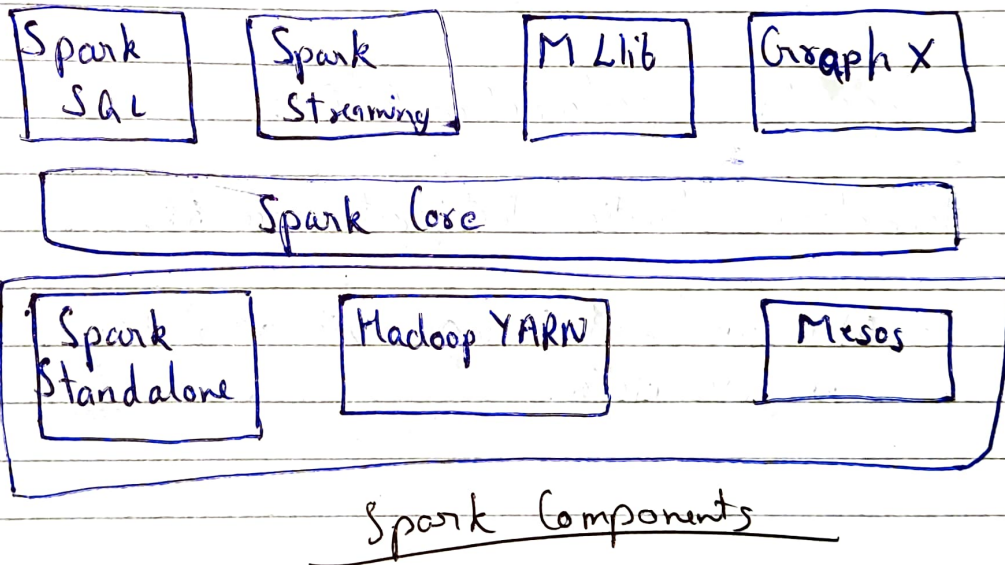 Spark
SQL
Spark
Streaming
MLlib
Graph X
Spark Core
Spark
Standalone
Hadoop YARN
Mesos
Spark Components